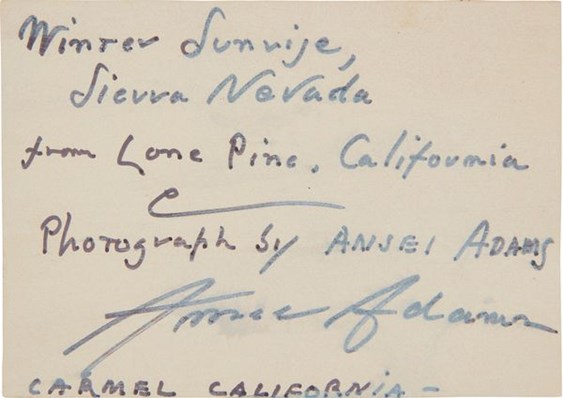 Winter Sunrise,
Sierra Nevada
from Lone Pine, California
Photograph by ANSEL ADAMS
Ansel Adams
CARMEL CALIFORNIA –